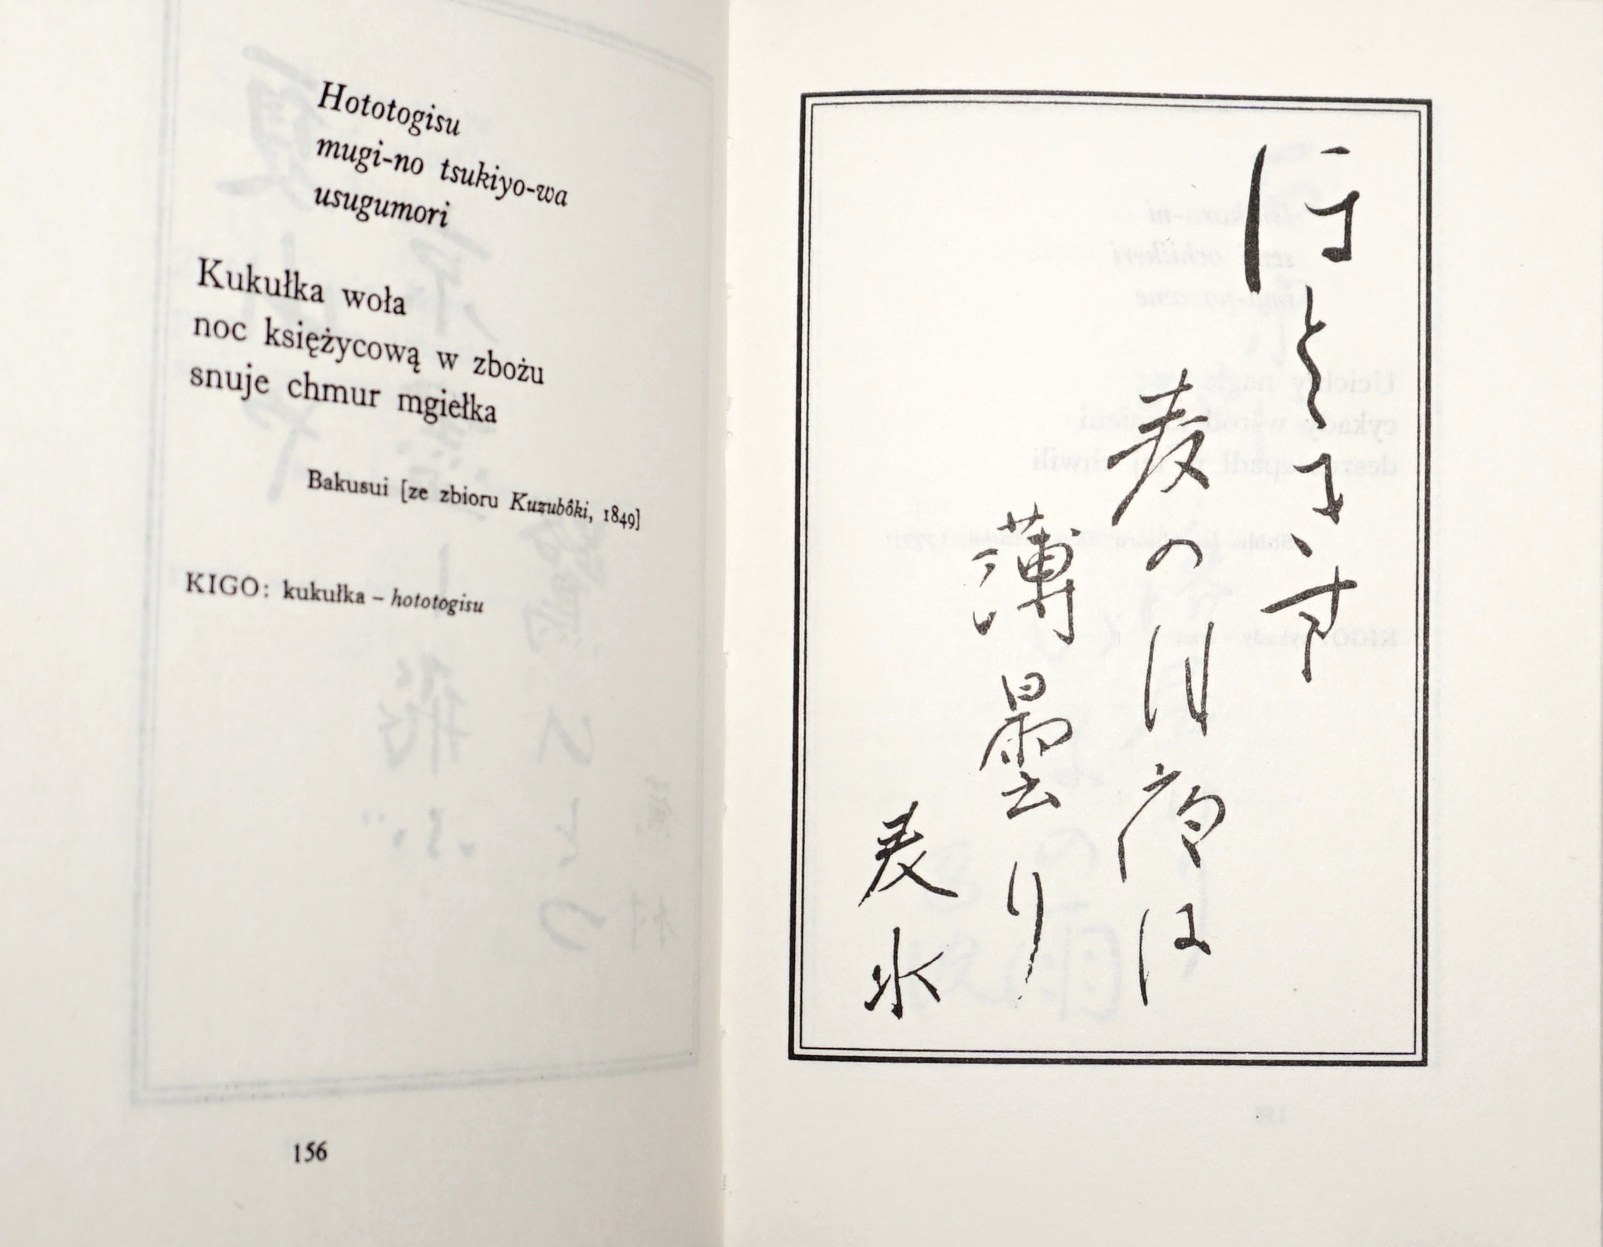 Hototogisu
mugi-no tsukiyo-wa
usugumori
Kukułka woła
noc księżycową w zbożu
snuje chmur mgiełka
Bakusui [ze zbioru Kuzubôki, 1849]
KIGO: kukułka – hototogisu
156
ほとゝきす
麦の月夜は
薄曇り
麦水